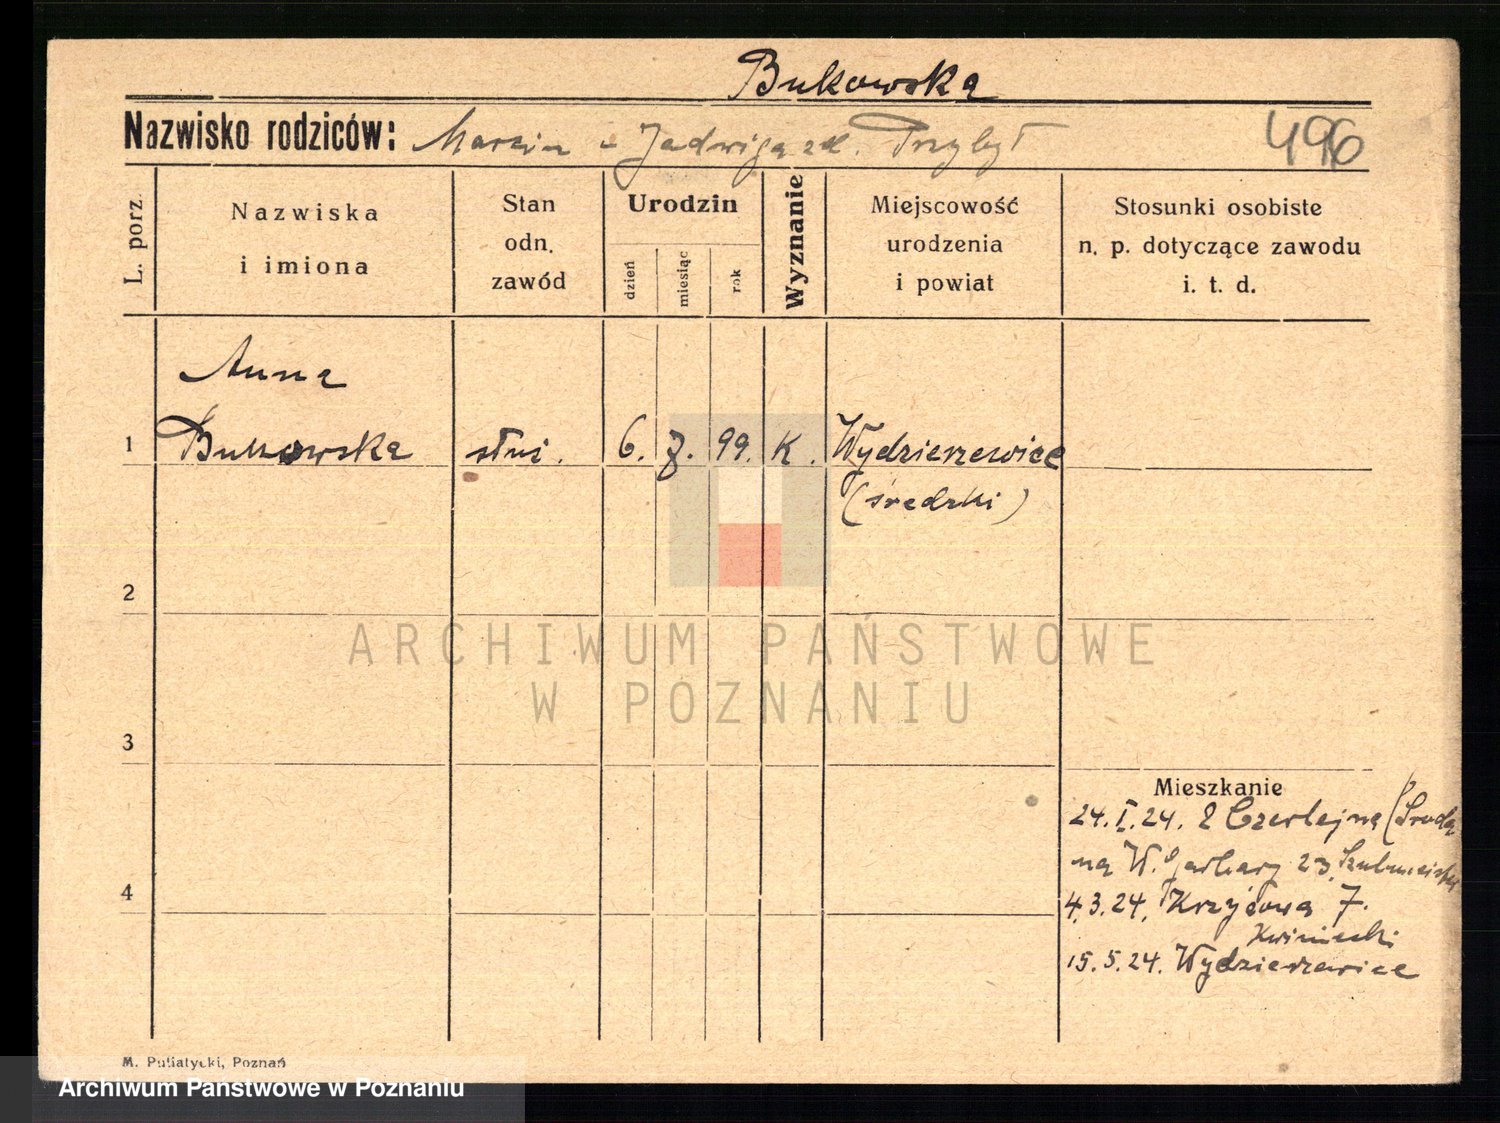 Bukowska
Nazwisko rodziców: Marcin - Jadwiga zd. Przybył
496
L. porz.
Nazwiska
i imiona
Stan
odn.
zawód
Urodzin
dzień
miesiąc
rok
Wyznanie
Miejscowość
urodzenia
i powiat
Stosunki osobiste
n. p. dotyczące zawodu
i. t. d.
Anna
1 Bukowska służ. 6. 7. 99. K. Wydzierzewice
(średzki)
2
3
4
ARCHIWUM PAŃSTWOWE
W POZNANIU
Mieszkanie
24. I. 24. z Czerlejna (Środa
na W. Garbary 23,
4.3.24, Krzyżowa 7.
Kwiniecki
15. 5. 24. Wydzierzewice
M. Putiatycki, Poznań
Archiwum Państwowe w Poznaniu